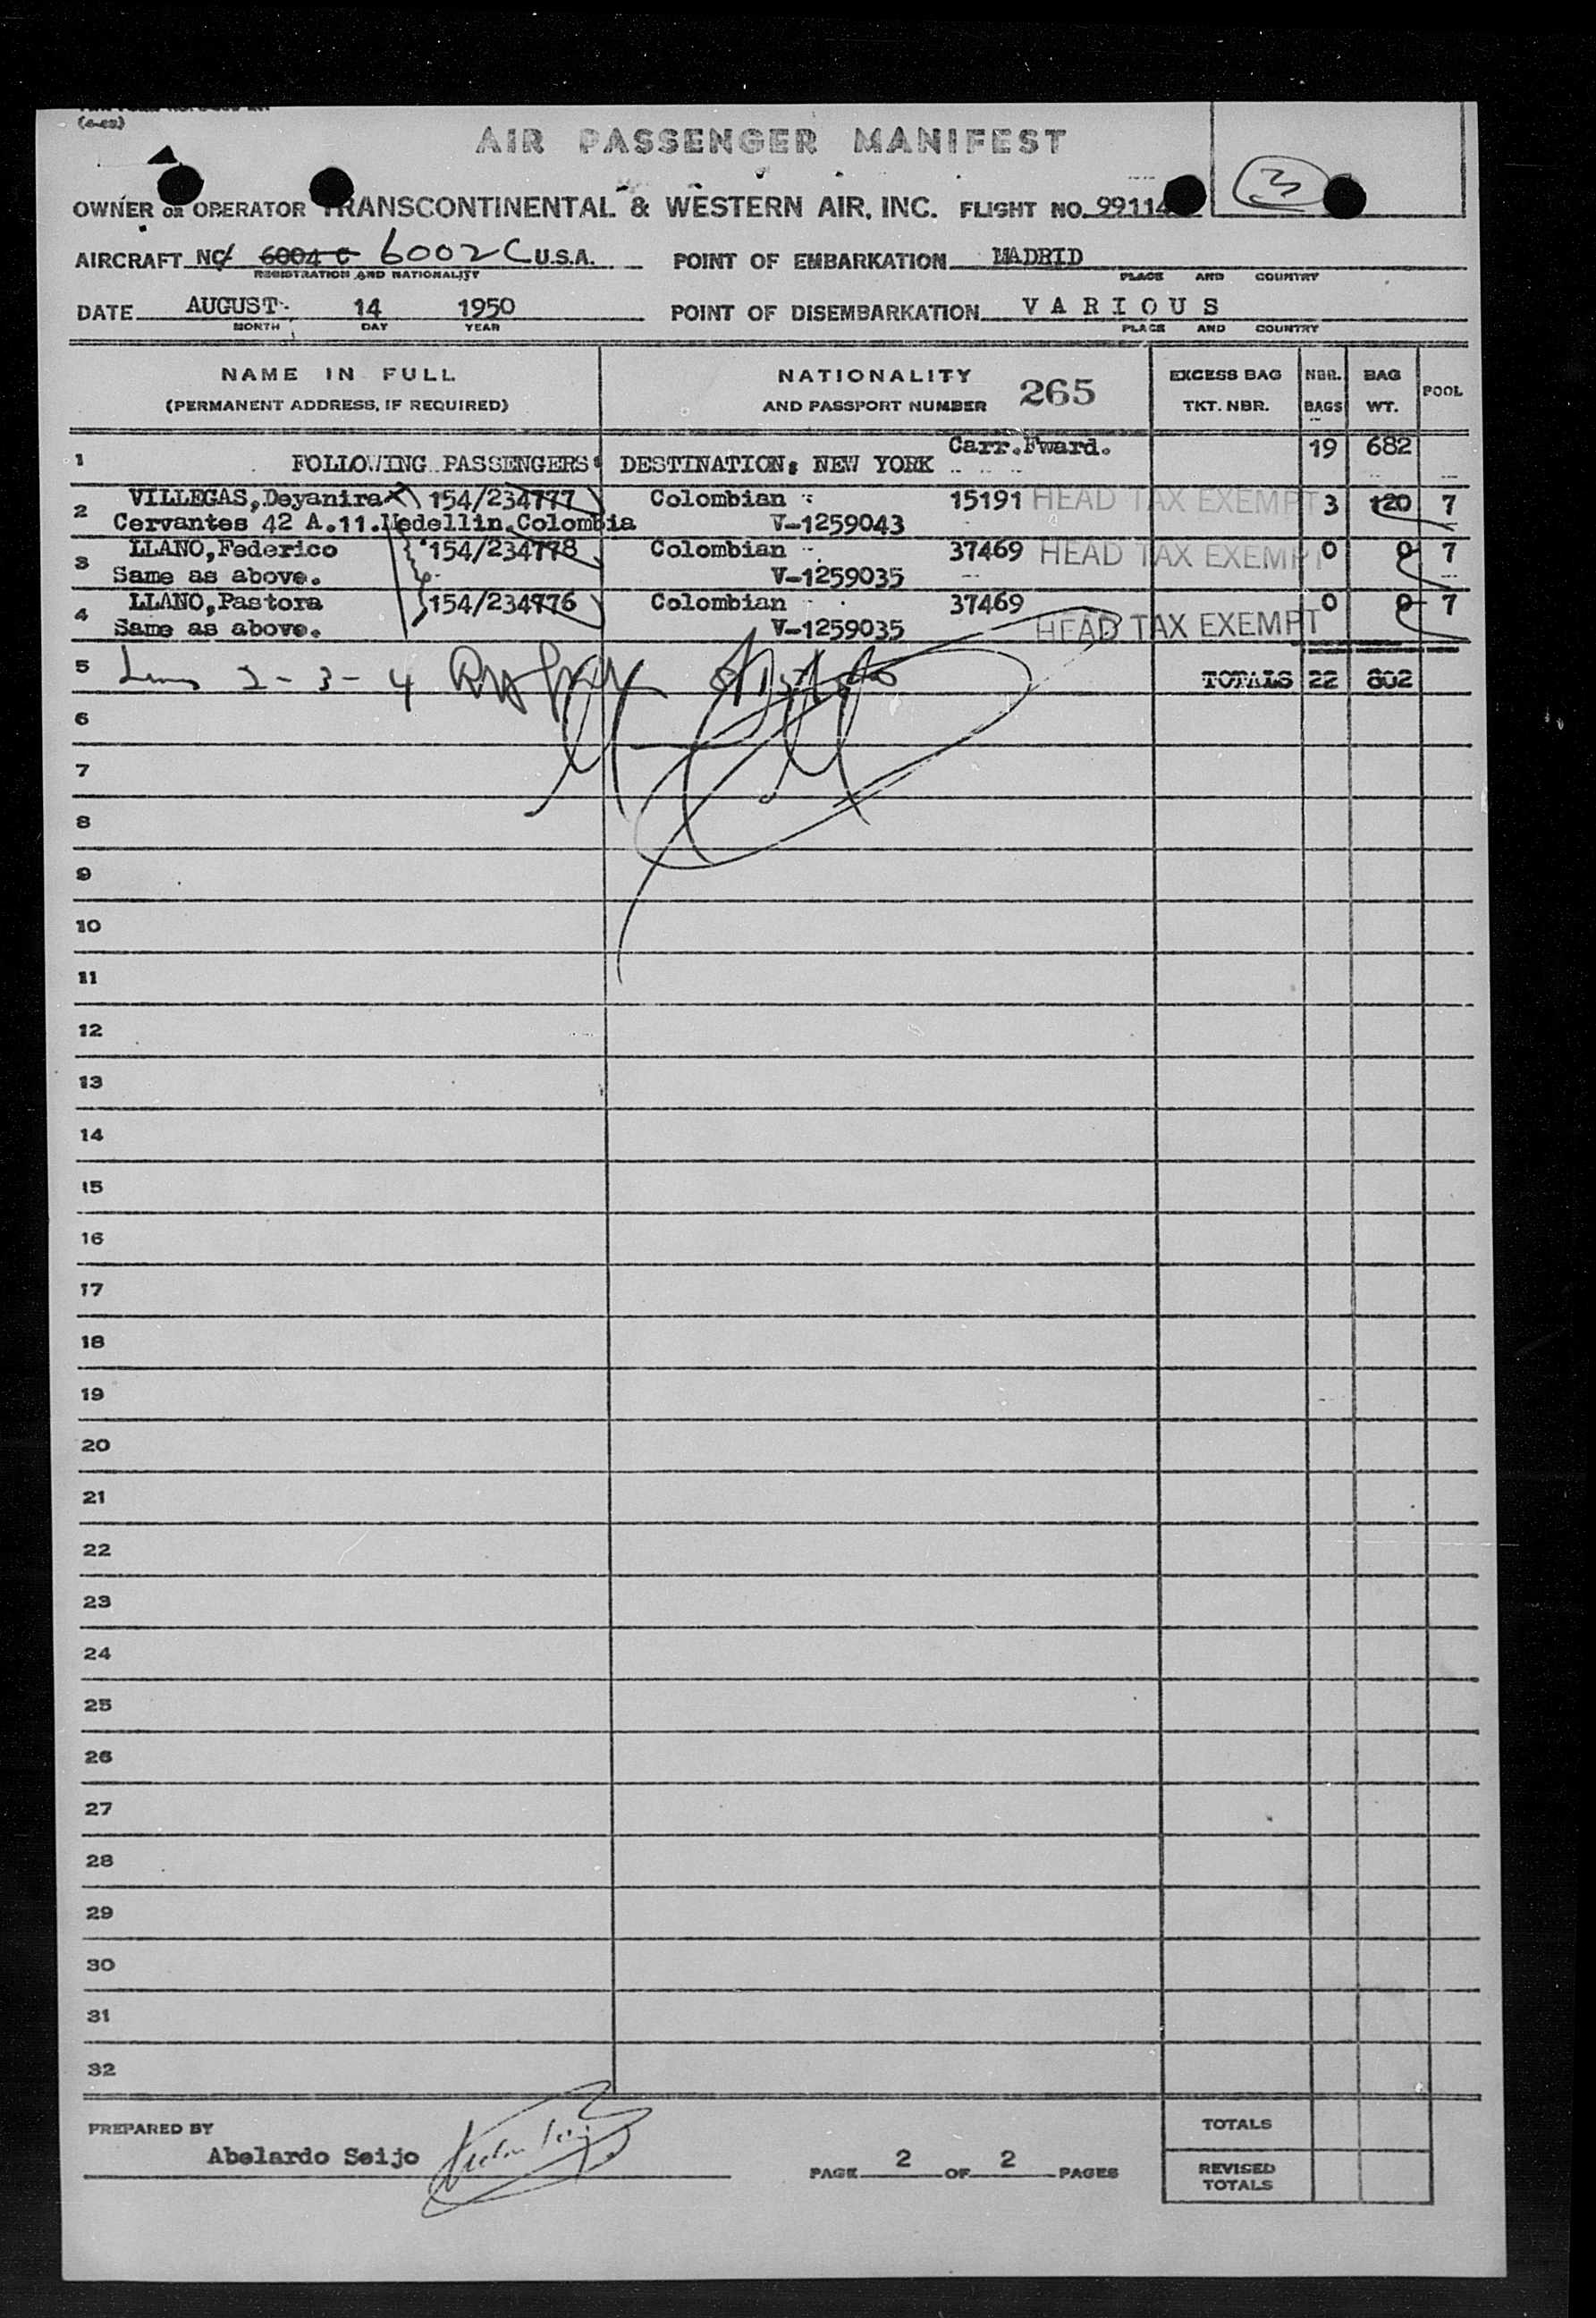 (4-49)
AIR PASSENGER MANIFEST
3
OWNER OR OPERATOR TRANSCONTINENTAL & WESTERN AIR, INC. FLIGHT NO. 99114
AIRCRAFT NC 6004 C 6002C U.S.A. POINT OF EMBARKATION MADRID
REGISTRATION AND NATIONALITY PLACE AND COUNTRY
DATE AUGUST 14 1950 POINT OF DISEMBARKATION VARIOUS
MONTH DAY YEAR PLACE AND COUNTRY
NAME IN FULL NATIONALITY 265 EXCESS BAG NBR. BAG POOL
(PERMANENT ADDRESS, IF REQUIRED) AND PASSPORT NUMBER TKT. NBR. BAGS WT.
Carr.Fward. 19 682
1 FOLLOWING PASSENGERS: DESTINATION: NEW YORK
2 VILLEGAS,Deyanira 154/234777 Colombian 15191 HEAD TAX EXEMPT 3 120 7
Cervantes 42 A.11.Medellin.Colombia V-1259043
3 LLANO,Federico 154/234778 Colombian 37469 HEAD TAX EXEMPT 0 0 7
Same as above. V-1259035
4 LLANO,Pastora 154/234776 Colombian 37469 HEAD TAX EXEMPT 0 0 7
Same as above. V-1259035
5 2-3-4 TOTALS 22 802
6
7
8
9
10
11
12
13
14
15
16
17
18
19
20
21
22
23
24
25
26
27
28
29
30
31
32
PREPARED BY TOTALS
Abelardo Seijo PAGE 2 OF 2 PAGES REVISED
TOTALS